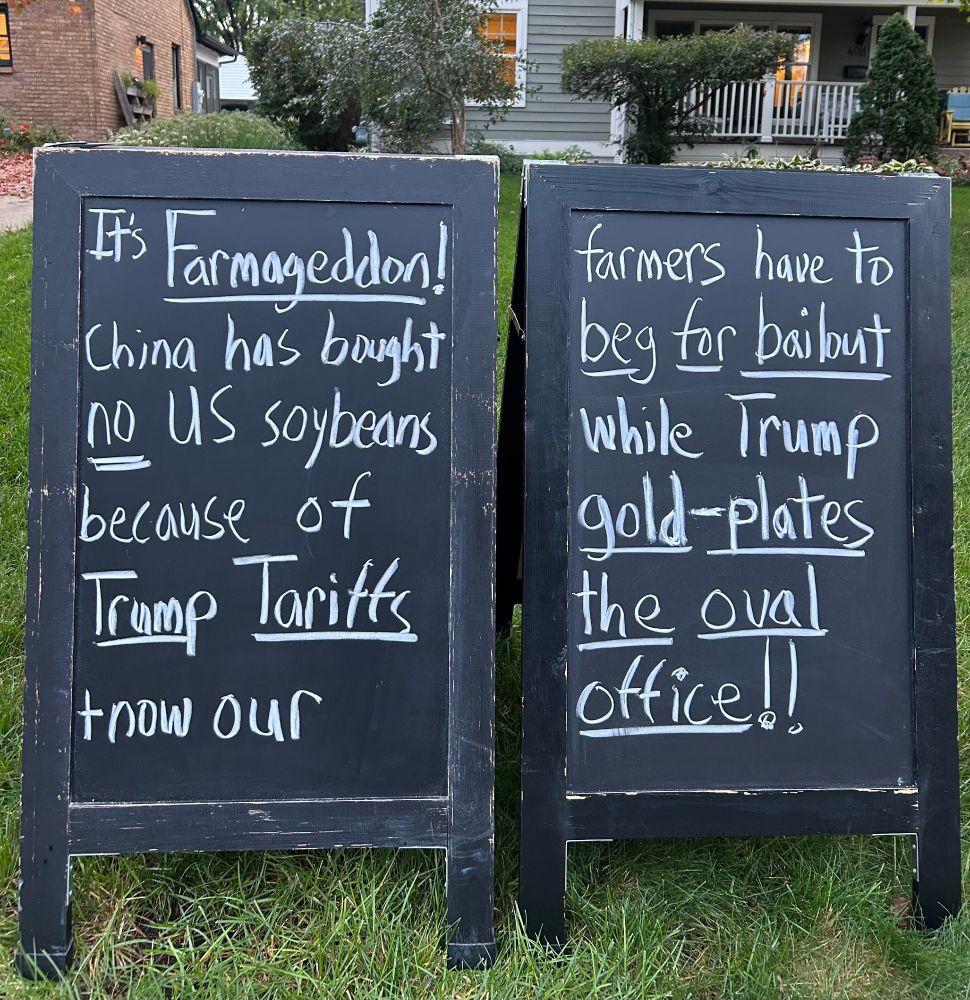 It's Farmageddon!
China has bought
no US soybeans
because of
Trump Tariffs
+now our
farmers have to
beg for bailout
while Trump
gold-plates
the oval
office!!